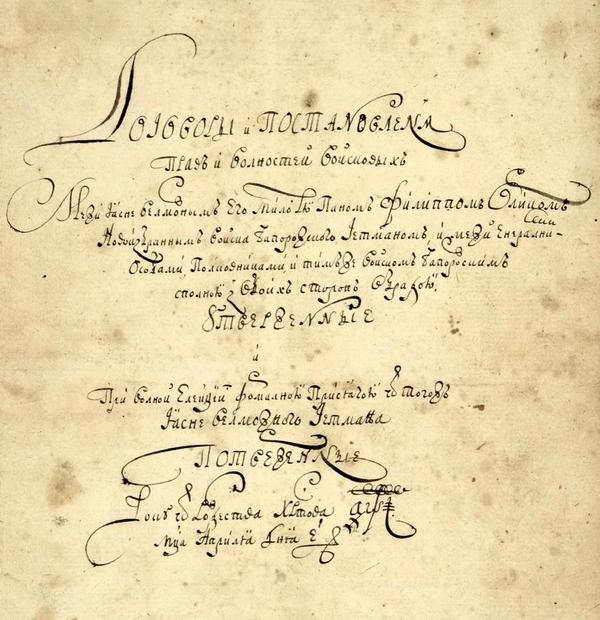 Договоры и Постановленія
Правъ и волностей войсковыхъ
Межи Ясне велможнымъ Его Милостю Паномъ Филиппомъ Орликомъ
Новоизбраннымъ Войска Запорозского Гетманомъ, и межи Енералними
Особами Полковниками и тимъже Войскомъ Запорозскимъ
сполною з обоихъ сторонъ обрадою
Утверженные
и
При волной Елекціи формалною Присягою отъ тогожъ
Ясне велможного Гетмана
Потверженные
Року отъ Рожества Христова
мца Априля Дня є